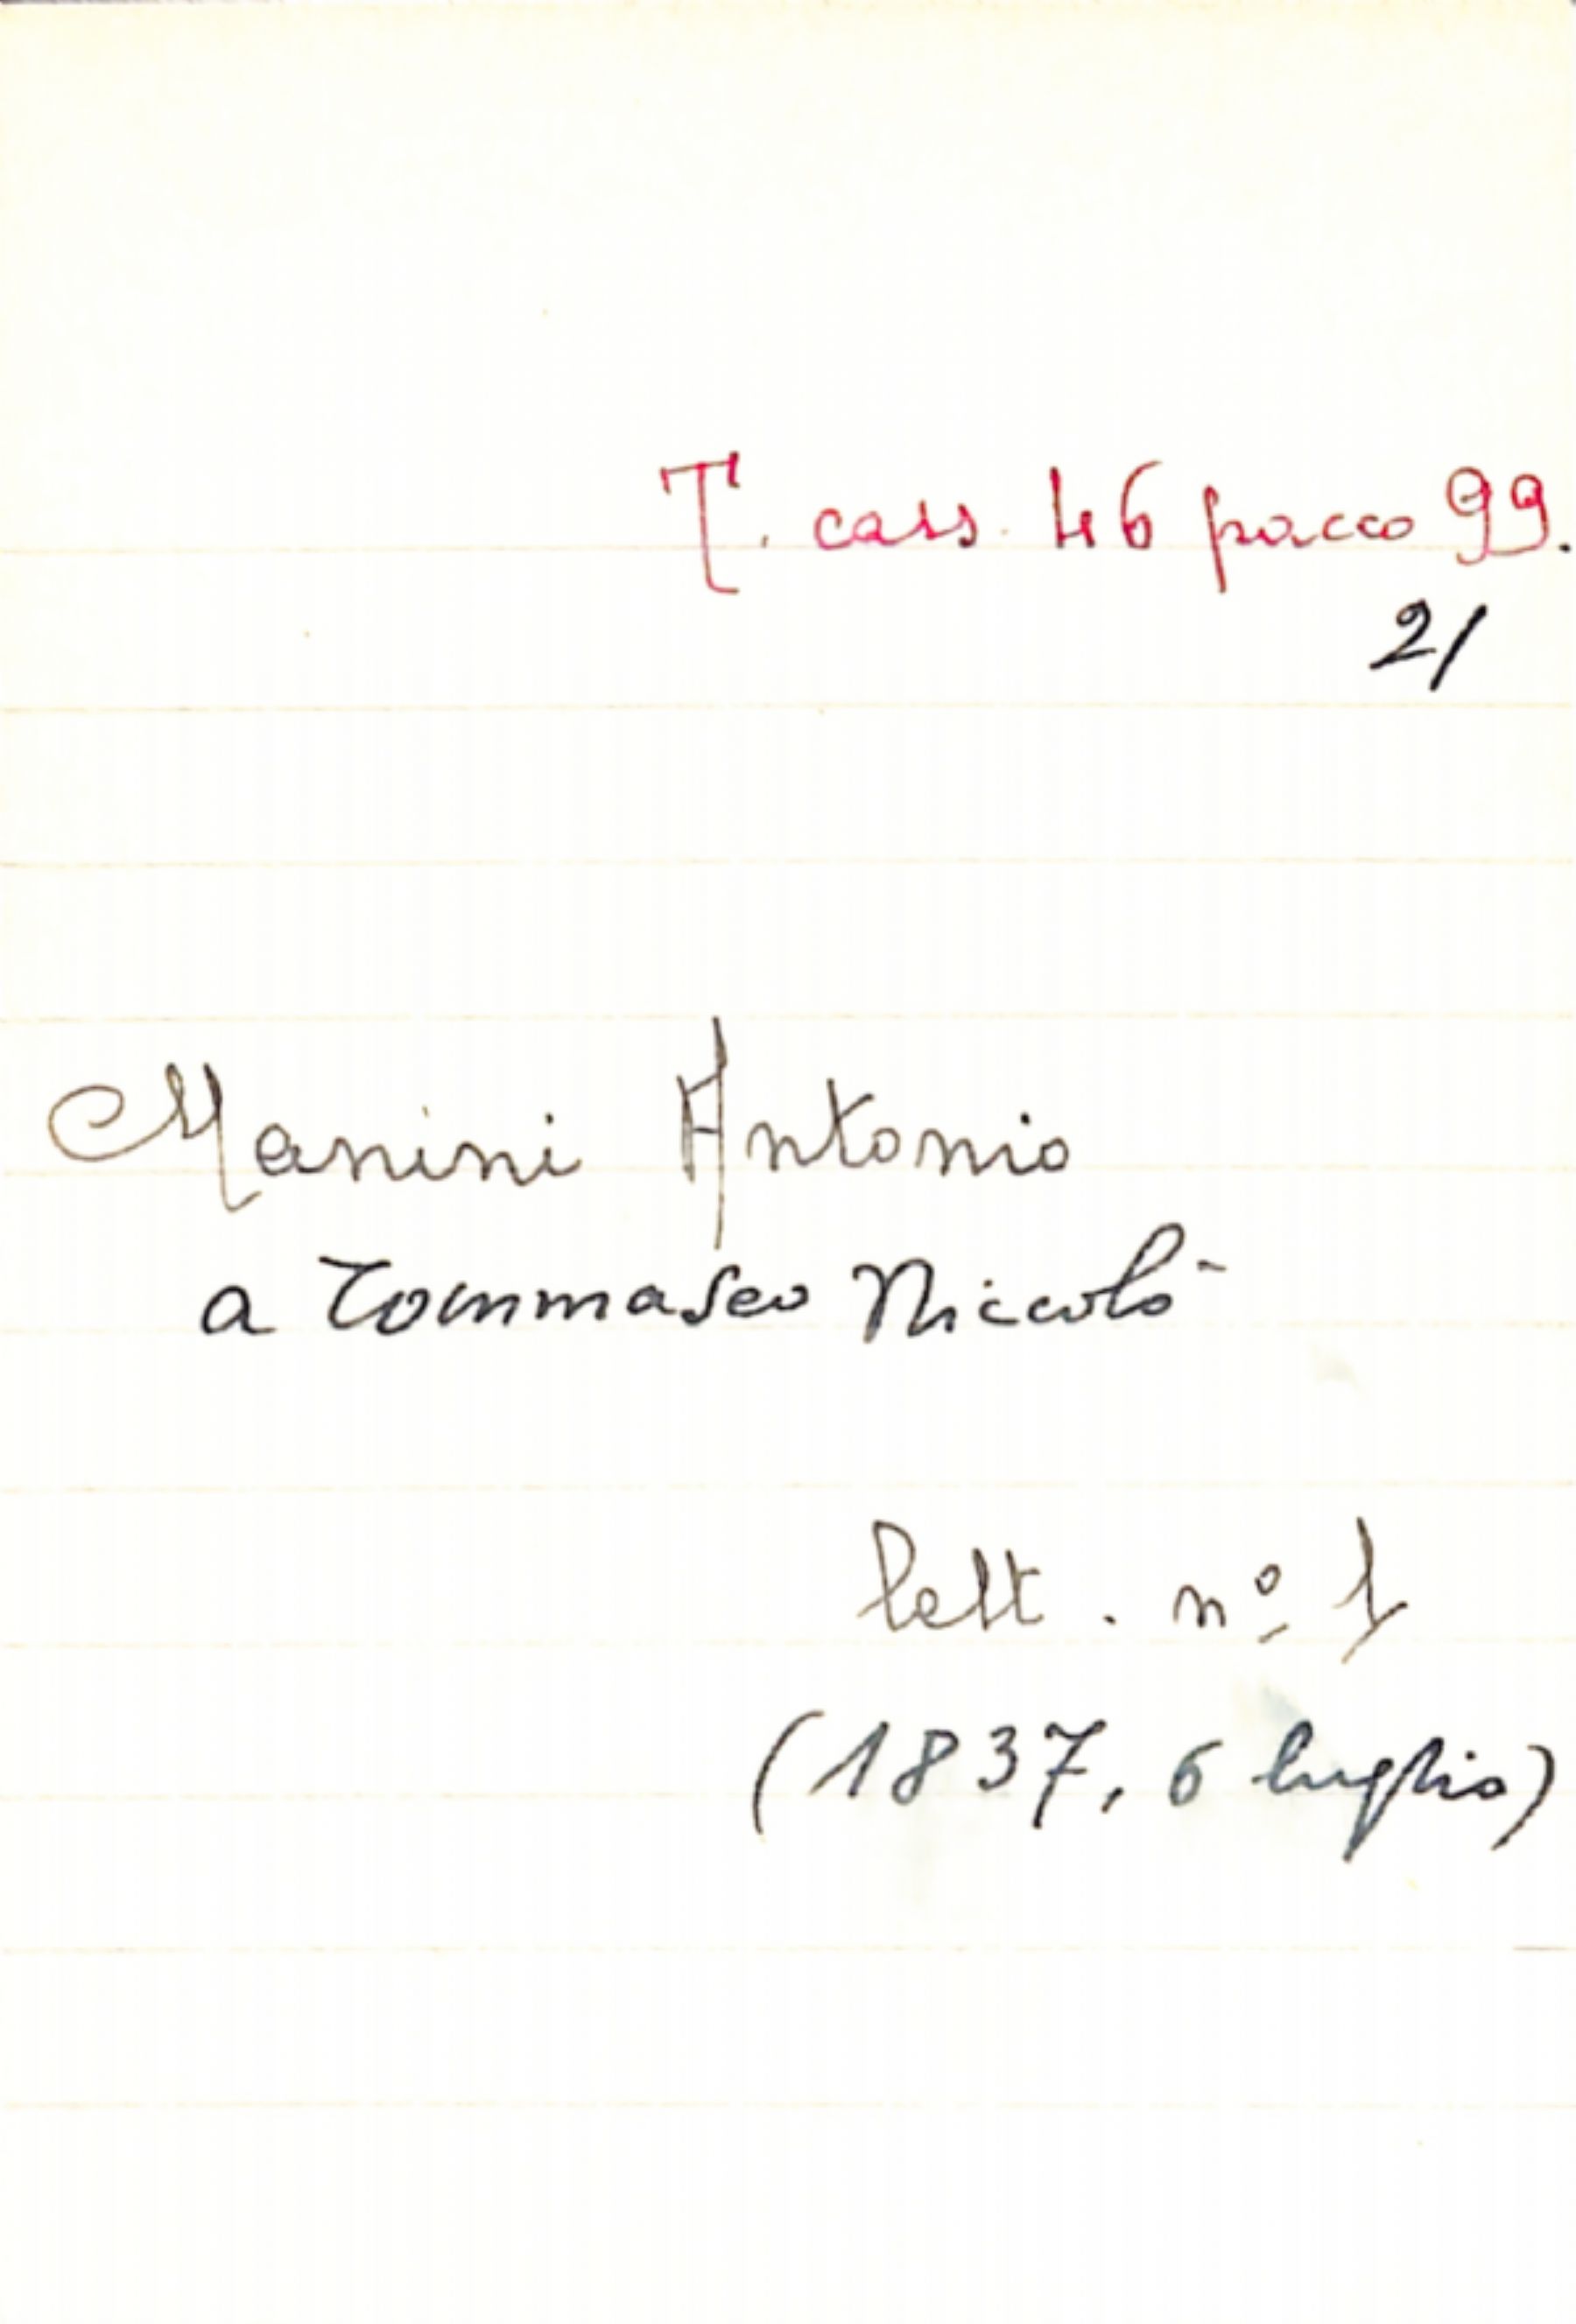 T. cass. 46 pacco 99.
21
Manini Antonio
a Tommaseo Niccolò
lett. nº 1
(1837, 6 luglio)